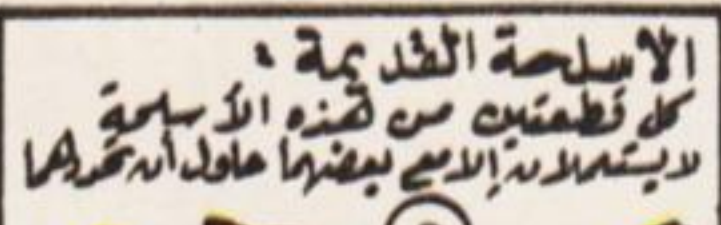 الاسلحة القديمة :
كل قطعتين من هذه الأسلحة
لايستعملان إلا مع بعضهما حاول أن تحددهما